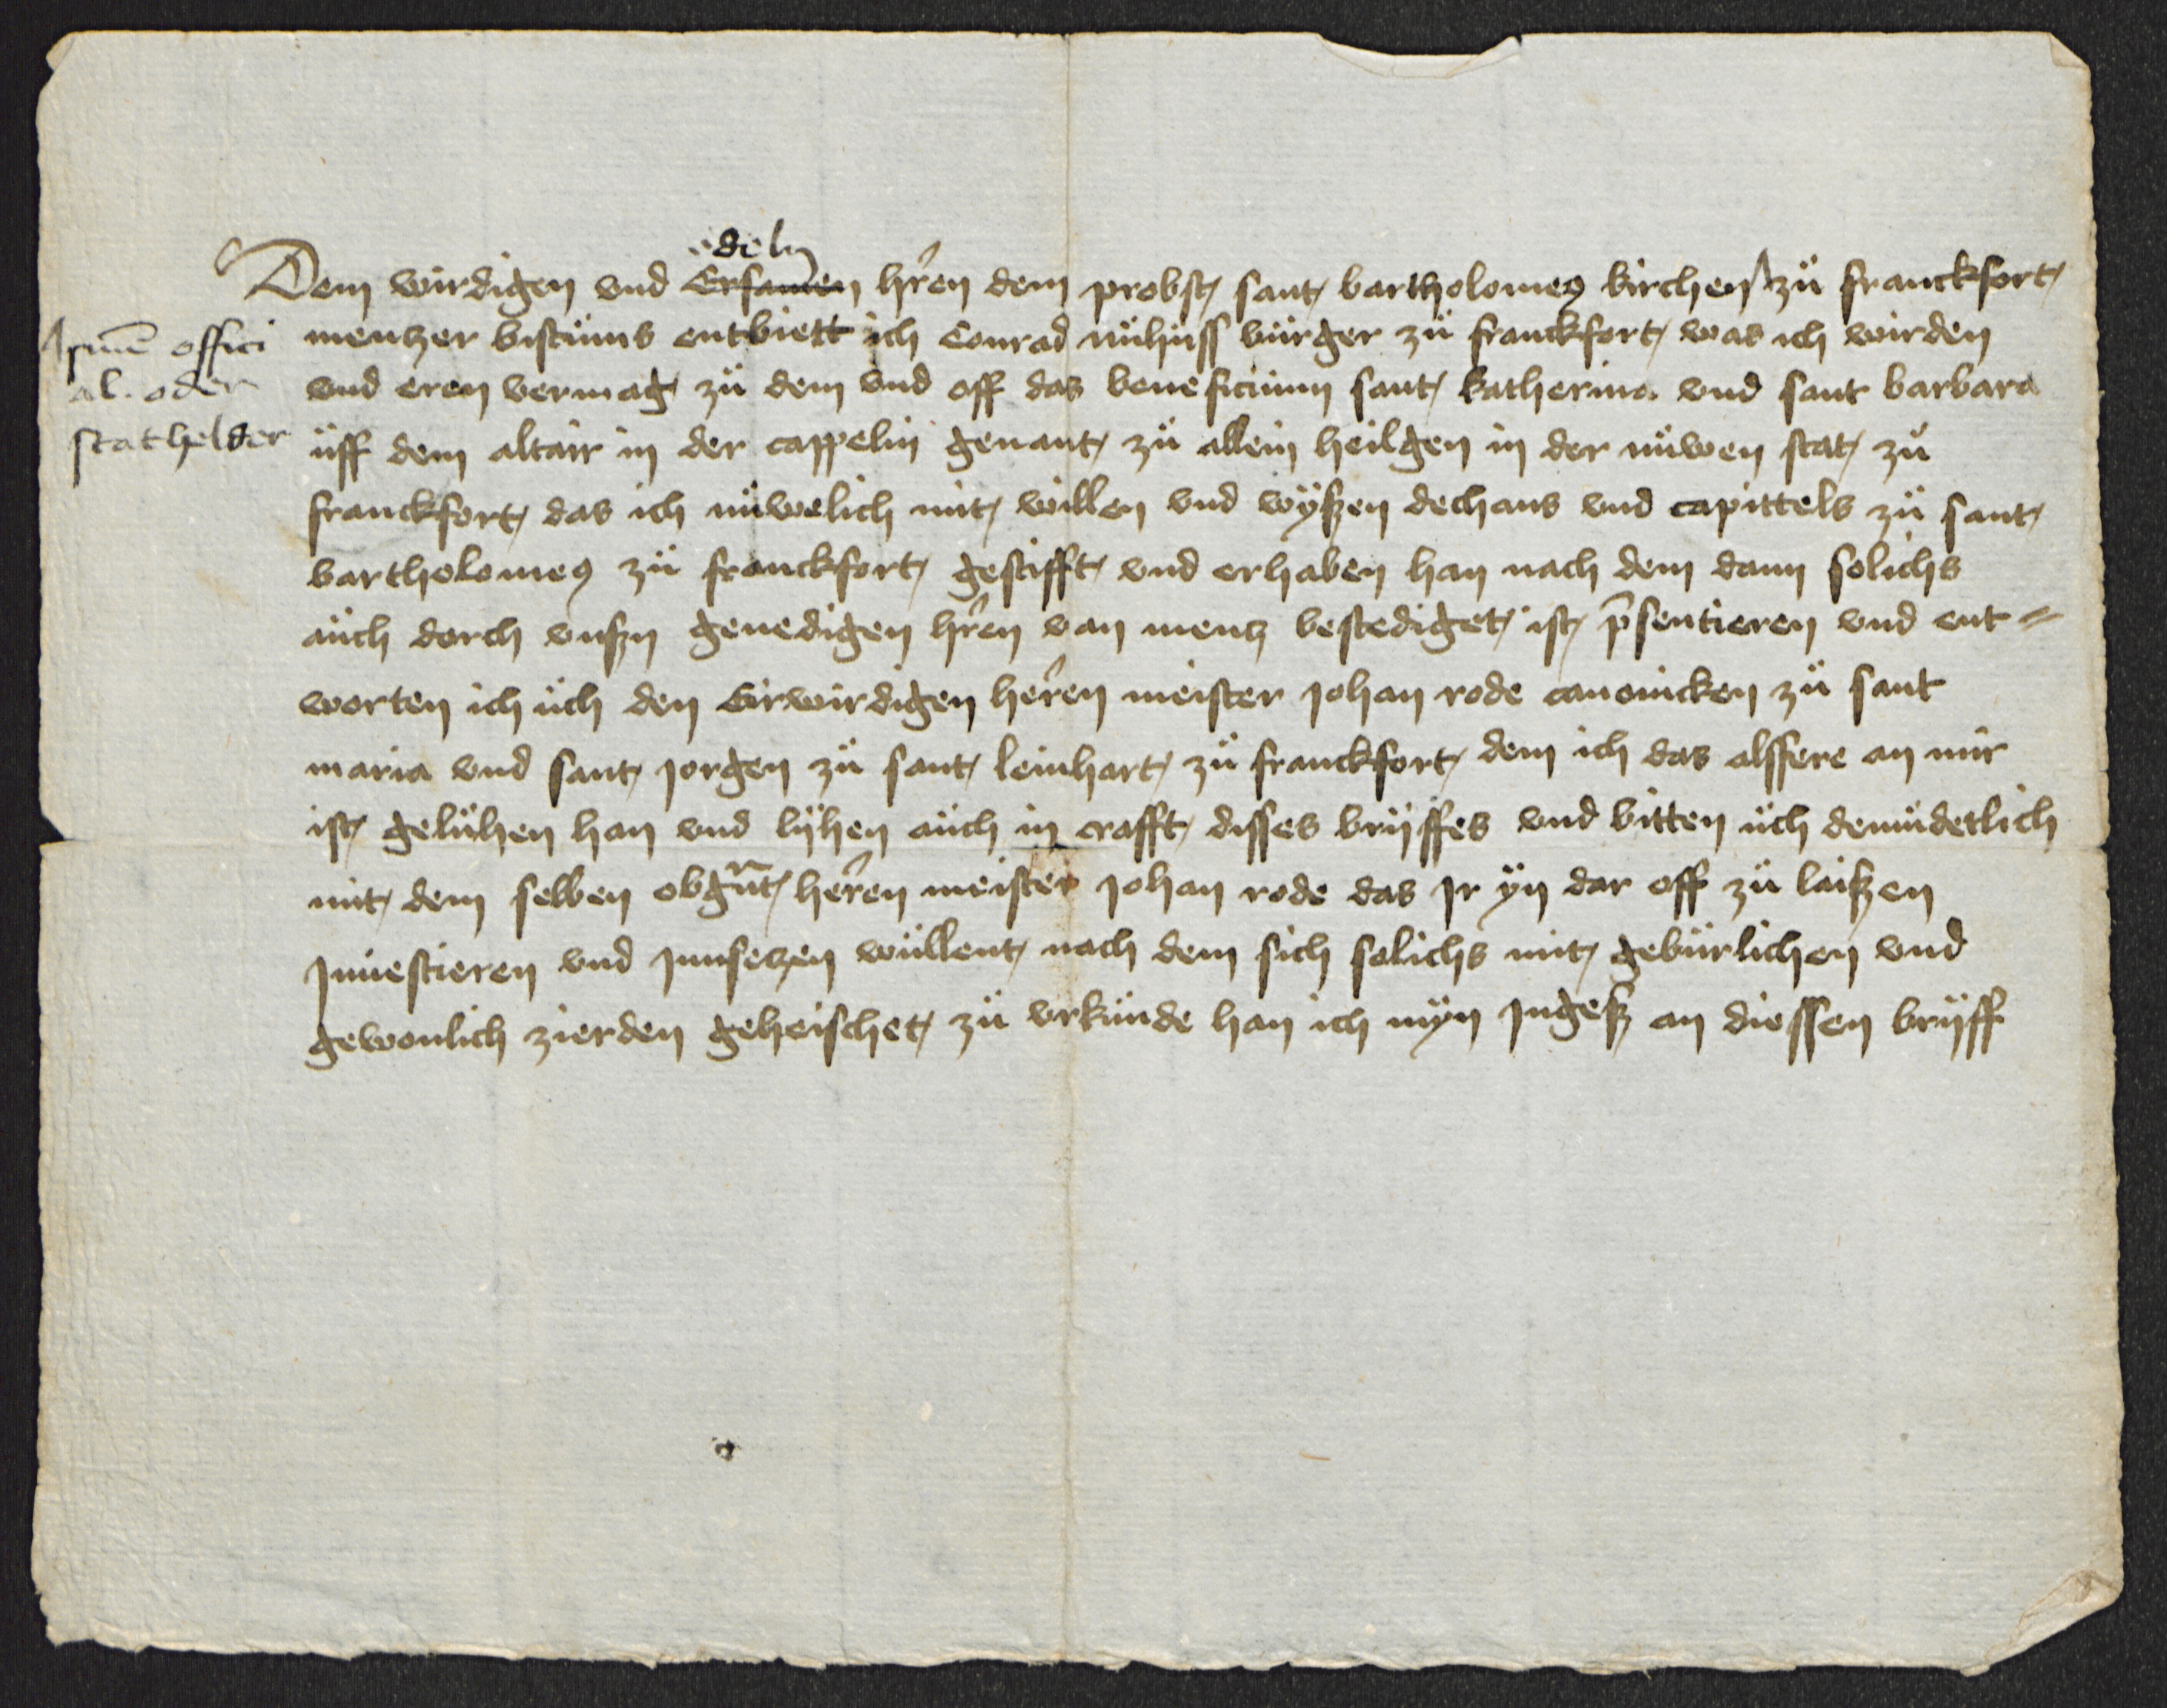 edeln
Dem wirdigen vnd Ersamen hr̃en dem probst sant bartholomeꝰ kirchen zü franckfort
sinē offici
al. oder
stathelder
mentzer bistüms entbiett ich Conrad nühuss bürger zü franckfort was ich wirden
vnd eren vermag zü dem vnd off das beneficiium sant katherina vnd sant barbara
üff dem altair in der cappelin genant zü allein heilgen in der nüwen stat zü
franckfort das ich nüwelich mit willen vnd wÿszen dechans vnd capittels zü sant
bartholomeꝰ zü franckfort gestifft vnd erhaben han nach dem dann solichs
aüch dorch vnszn genedigen hr̃en van mentz bestediget ist p̄sentieren vnd ent=
worten ich üch den Eirwirdigen her̃en meister Johan rode canonicken zü sant
maria vnd sant Jorgen zü sant leinhart zü franckfort dem ich das alssere an mir
ist gelühen han vnd lÿhen aüch in crafft disses brÿffes vnd bitten üch demüdetlich
mit dem selben obgn̄t her̃en meister Johan rode das Ir ÿn dar off zü laiszen
Jnuestieren vnd Jnnsetzen wüllent nach dem sich solichs mit gebürlichen vnd
gewonlich zierden geheischet zü vrkünde han ich mÿn Jngesz an diessen brÿff